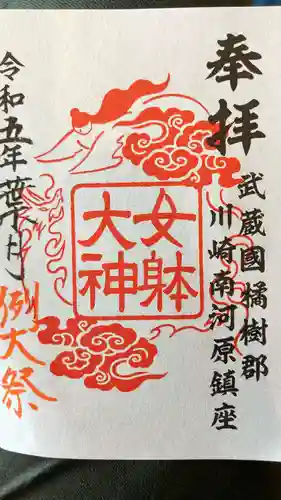 奉拝
武蔵國橘樹郡
川崎南河原鎮座
女躰
大神
令和五年葉月
例大祭